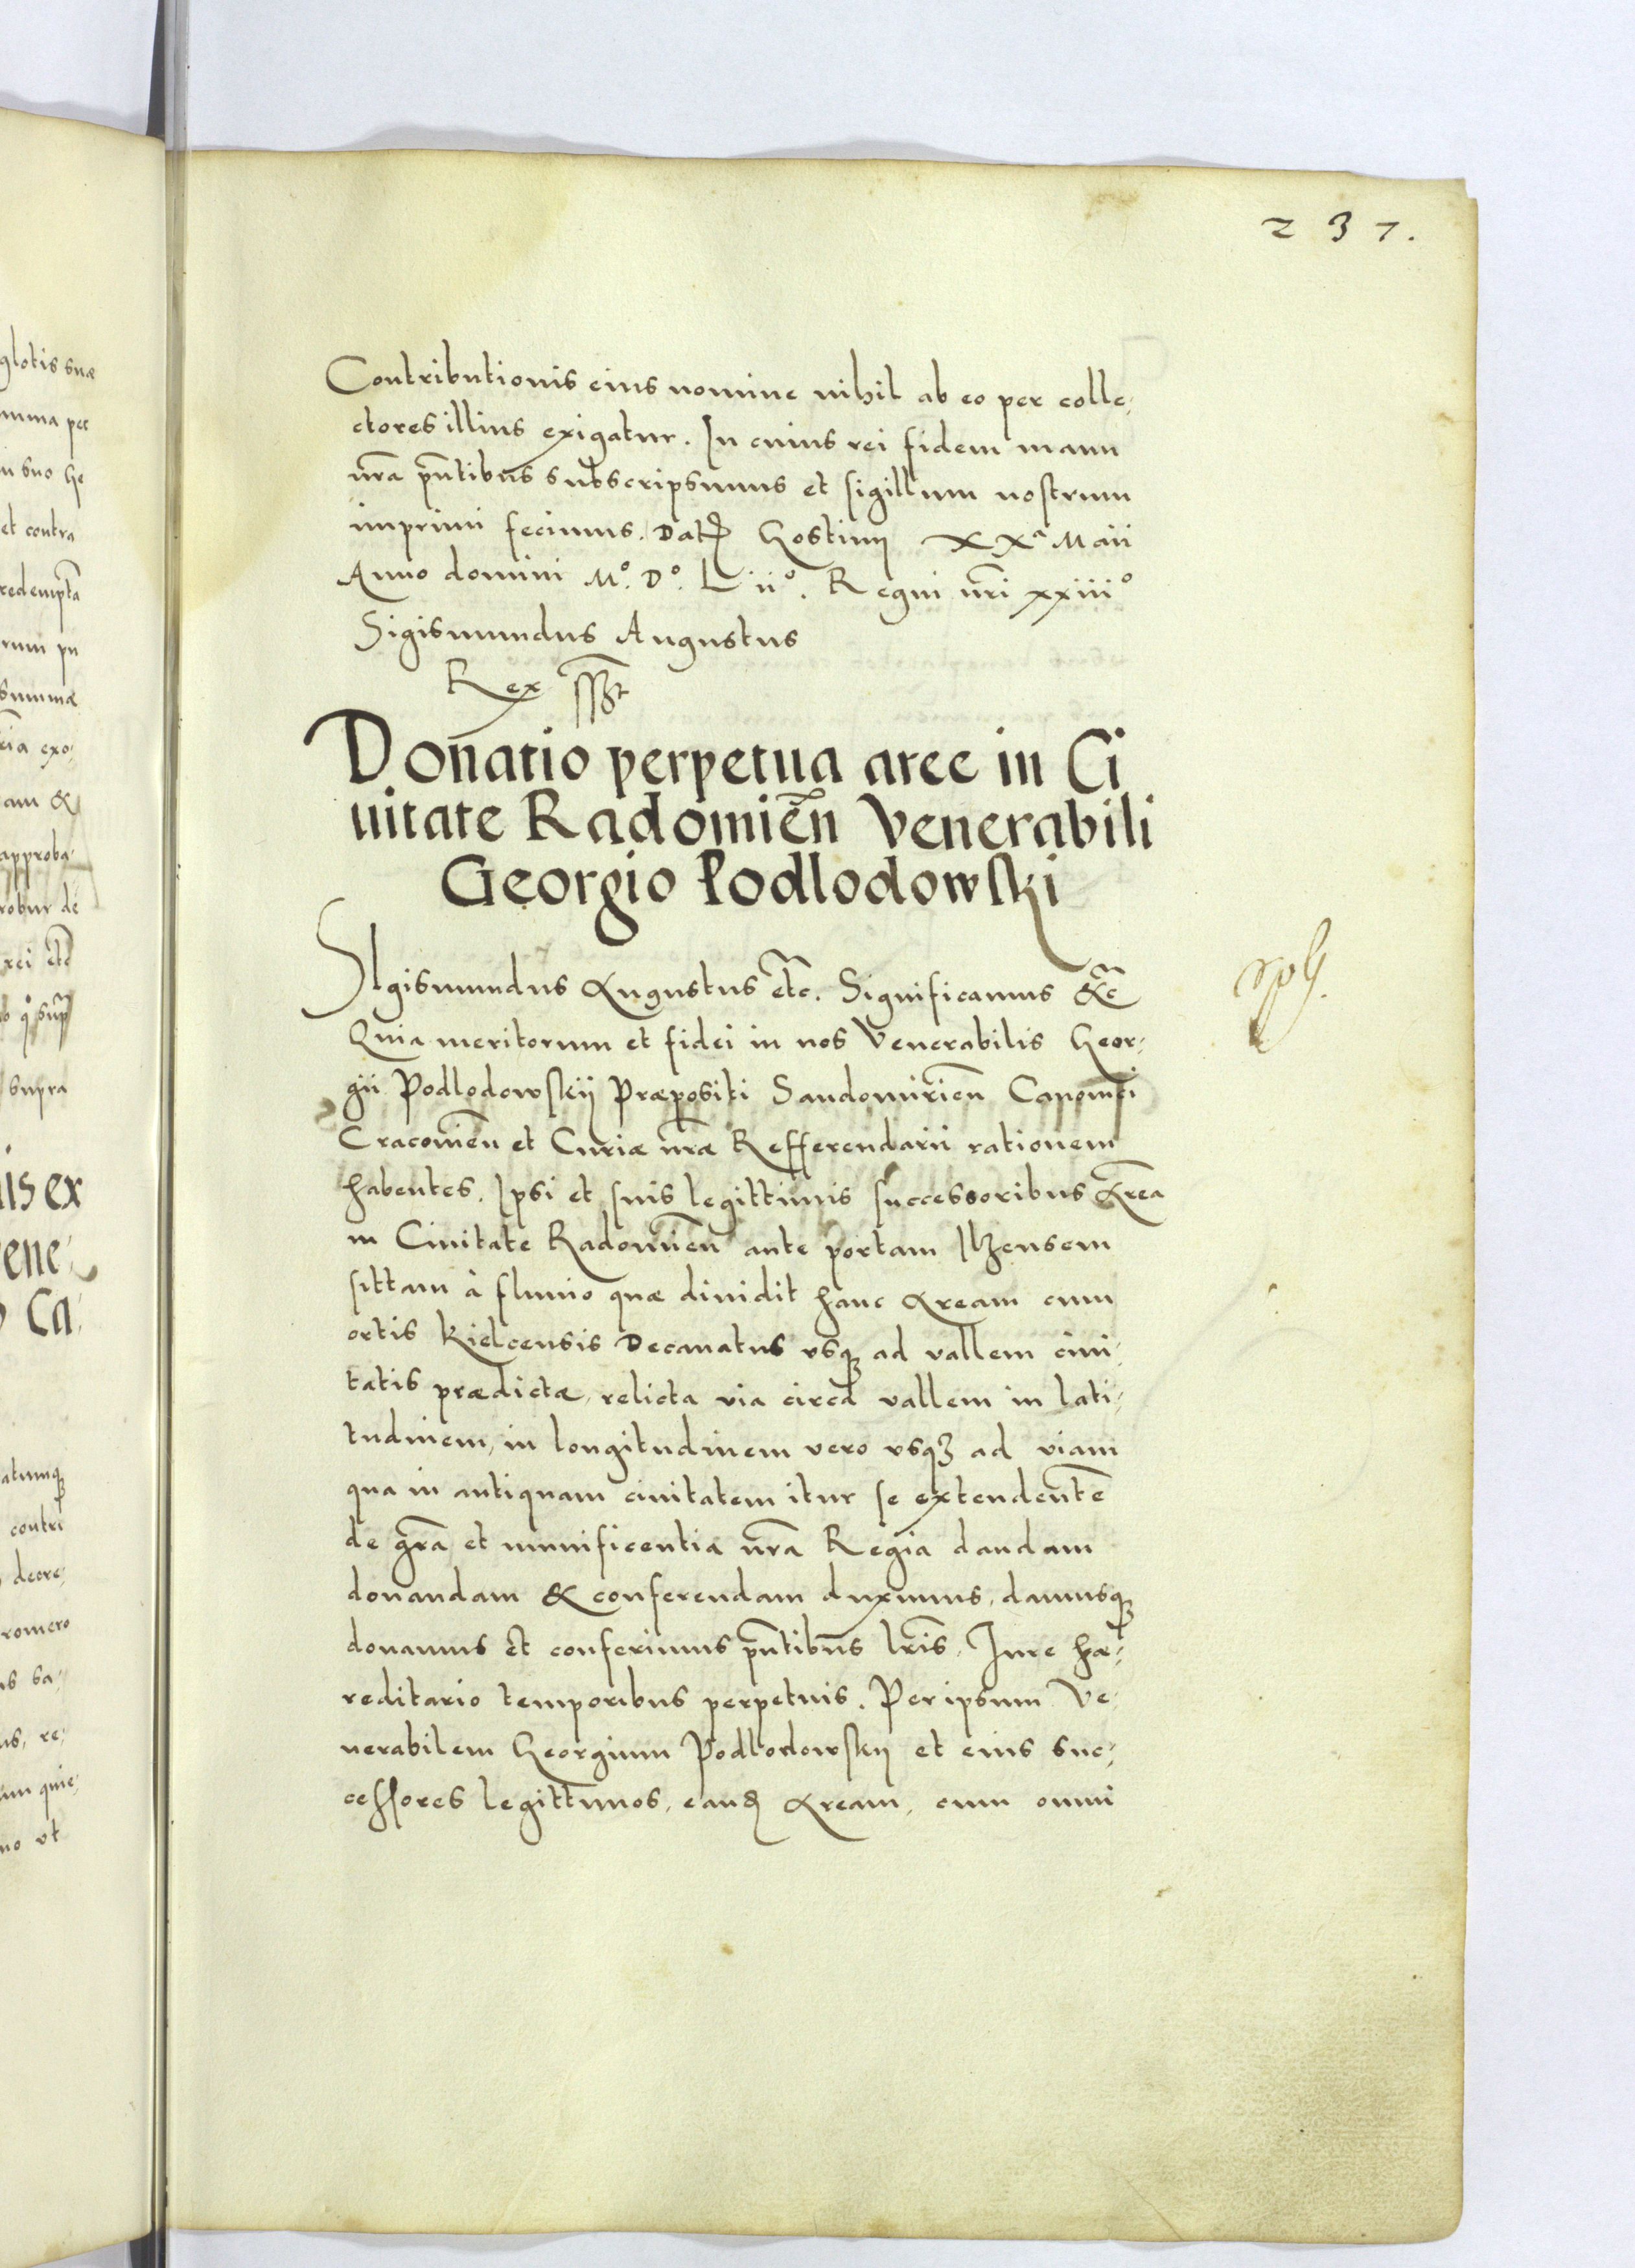 237.
Contributionis eius nomine nihil ab eo per colle¬
ctores illius exigatur. In cuius rei fidem manu
nr̃a pñtibus subscripsimus et sigillum nostrum
imprimi fecimus. Datҙ Gostinij XXª Maii
Anno domini Mº. Dº. L iiº. Regni nr̃i xxiiiº
Sigismundus Augustus
Rex
Donatio perpetua aree in Ci
uitate Radomień Venerabili
Georgio Podlodowski
SIgismundus Augustus etc̃. Significamus &c̃
Quia meritorum et fidei in nos Venerabilis Geor¬
gii Podlodowskij Præpositi Sandomirień Canonici
Cracovień et Curiæ nr̃æ Refferendarii rationem
habentes. Ipsi et suis legittimis successoribus Area
in Ciuitate Radomień ante portam Ilzensem
sittam à fluuio quæ diuidit hanc Aream cum
ortis Kielcensis Decanatus vsqꝫ ad vallem ciui¬
tatis prædictæ, relicta via circa vallem in lati¬
tudinem, in longitudinem vero vsqꝫ ad viam
qua in antiquam ciuitatem itur se extendentẽ
de gr̃a et munificentia nr̃a Regia dandam
donandam & conferendam duximus, damusqꝫ
donamus et conferimus pñtibus lr̃is. Iure hæ¬
reditario temporibus perpetuis. Per ipsum Ve¬
nerabilem Georgium Podlodowskij et eius suc¬
cessores legittimos, eandҙ Aream, cum omni
glotis suæ
umma per
in suo he
et contra
redemptã
rum pu
summæ
ria exo¬
am &
approba¬
robur de
rei etc̃
supra
iis ex
ene¬
Ca¬
atumqꝫ
contri
decre¬
romero
us sa¬
us, re¬
um quie¬
no vt